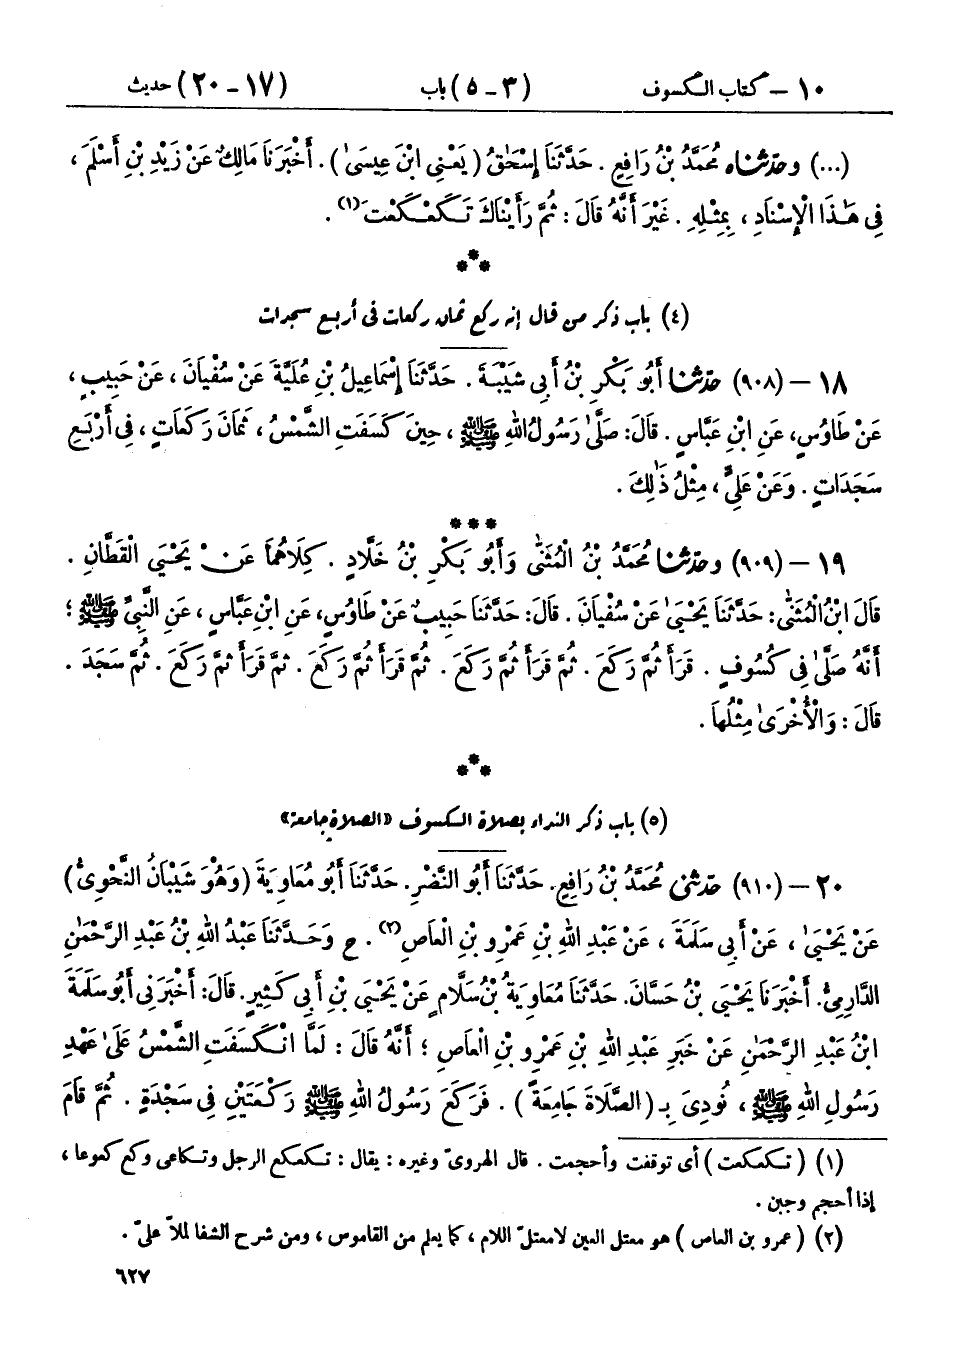 ١٠ – كتاب الكسوف (٣ – ٥) باب (١٧ – ٢٠) حديث
(...) وحدثناه مُحَمَّدُ بْنُ رَافِعٍ . حَدَّثَنَا إِسْحَٰقُ ( يَعْنِي ابْنَ عِيسَىٰ ) . أَخْبَرَنَا مَالِكٌ عَنْ زَيْدِ بْنِ أَسْلَمَ ،
فِي هَٰذَا الْإِسْنَادِ ، بِمِثْلِهِ . غَيْرَ أَنَّهُ قَالَ : ثُمَّ رَأَيْنَاكَ تَكَعْكَعْتَ(١) .
***
(٤) باب ذكر من قال إنه ركع ثمان ركعات في أربع سجدات
١٨ – (٩٠٨) حدثنا أَبُو بَكْرِ بْنُ أَبِي شَيْبَةَ . حَدَّثَنَا إِسْمَاعِيلُ بْنِ عُلَيَّةَ عَنْ سُفْيَانَ ، عَنْ حَبِيبٍ ،
عَنْ طَاوُسٍ، عَنِ ابْنِ عَبَّاسٍ . قَالَ: صَلَّىٰ رَسُولُ اللهِ ﷺ ، حِينَ كَسَفَتِ الشَّمْسُ ، ثَمَانَ رَكَعَاتٍ ، فِي أَرْبَعِ
سَجَدَاتٍ . وَعَنْ عَلِيٍّ ، مِثْلُ ذَٰلِكَ .
***
١٩ – (٩٠٩) وحدثنا مُحَمَّدُ بْنُ الْمُثَنَّىٰ وَأَبُو بَكْرِ بْنُ خَلَّادٍ . كِلَاهُمَا عَنْ يَحْيَى الْقَطَّانِ .
قَالَ ابْنُ الْمُثَنَّىٰ : حَدَّثَنَا يَحْيَىٰ عَنْ سُفْيَانَ . قَالَ: حَدَّثَنَا حَبِيبٌ عَنْ طَاوُسٍ، عَنِ ابْنِ عَبَّاسٍ ، عَنِ النَّبِيِّ ﷺ ؛
أَنَّهُ صَلَّىٰ فِي كُسُوفٍ . قَرَأَ ثُمَّ رَكَعَ . ثُمَّ قَرَأَ ثُمَّ رَكَعَ . ثُمَّ قَرَأَ ثُمَّ رَكَعَ . ثُمَّ قَرَأَ ثُمَّ رَكَعَ . ثُمَّ سَجَدَ .
قَالَ : وَالْأُخْرَىٰ مِثْلُهَا .
***
(٥) باب ذكر النداء بصلاة الكسوف «الصلاة جامعة»
٢٠ – (٩١٠) حدثني مُحَمَّدُ بْنُ رَافِعٍ. حَدَّثَنَا أَبُو النَّضْرِ. حَدَّثَنَا أَبُو مُعَاوِيَةَ (وَهُوَ شَيْبَانُ النَّحْوِيُّ)
عَنْ يَحْيَىٰ ، عَنْ أَبِي سَلَمَةَ ، عَنْ عَبْدِ اللهِ بْنِ عَمْرِو بْنِ الْعَاصِ(٢) . ح وَحَدَّثَنَا عَبْدُ اللهِ بْنُ عَبْدِ الرَّحْمَٰنِ
الدَّارِمِيُّ. أَخْبَرَنَا يَحْيَى بْنُ حَسَّانَ. حَدَّثَنَا مُعَاوِيَةُ بْنُ سَلَّامٍ عَنْ يَحْيَى بْنِ أَبِي كَثِيرٍ. قَالَ: أَخْبَرَنِي أَبُو سَلَمَةَ
ابْنُ عَبْدِ الرَّحْمَٰنِ عَنْ خَبَرِ عَبْدِ اللهِ بْنِ عَمْرِو بْنِ الْعَاصِ ؛ أَنَّهُ قَالَ : لَمَّا انْكَسَفَتِ الشَّمْسُ عَلَىٰ عَهْدِ
رَسُولِ اللهِ ﷺ ، نُودِيَ بِـ ( الصَّلَاةَ جَامِعَةً ) . فَرَكَعَ رَسُولُ اللهِ ﷺ رَكْعَتَيْنِ فِي سَجْدَةٍ . ثُمَّ قَامَ
(١) ( تكعكعت ) أى توقفت وأحجمت . قال الهروىّ وغيره : يقال : تكعكع الرجل وتكاعى وكع كعوعا ،
إذا أحجم وجبن .
(٢) ( عمرو بن العاص ) هو معتل العين لا معتلّ اللام ، كما يعلم من القاموس ، ومن شرح الشفا للملّا علىّ .
٦٢٧